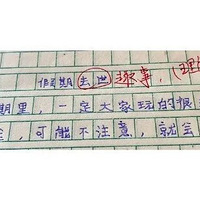 假期去趣事,(理
期里,一定大家玩的很
,可能不注意,就会